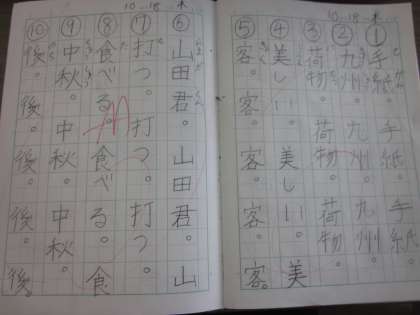 10 … 18 木
① 手紙。手紙。手紙。
② 九州。九州。九州。
③ 荷物。荷物。荷物。
④ 美しい。美しい。美
⑤ 客。客。客。客。客。
10 … 18 木
⑥ 山田君。山田君。山
⑦ 打つ。打つ。打つ。
⑧ 食べる。食べる。食
⑨ 中秋。中秋。中秋。
⑩ 後。後。後。後。後。